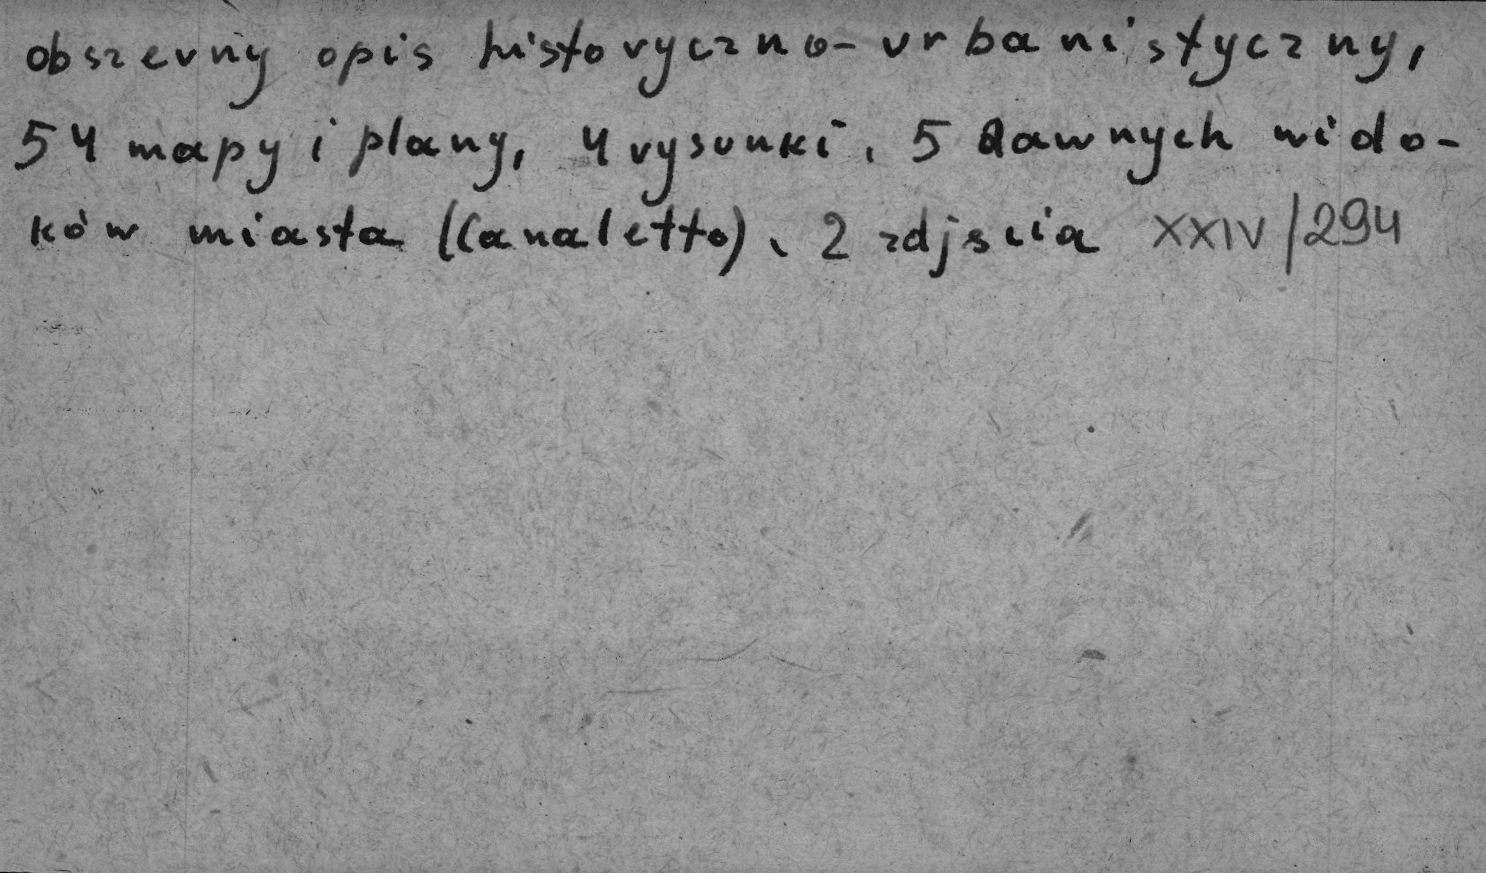 obszerny opis historyczno-urbanistyczny,
54 mapy i plany, 4 rysunki, 5 dawnych wido-
ków miasta (Canaletto), 2 zdjęcia XXIV/294